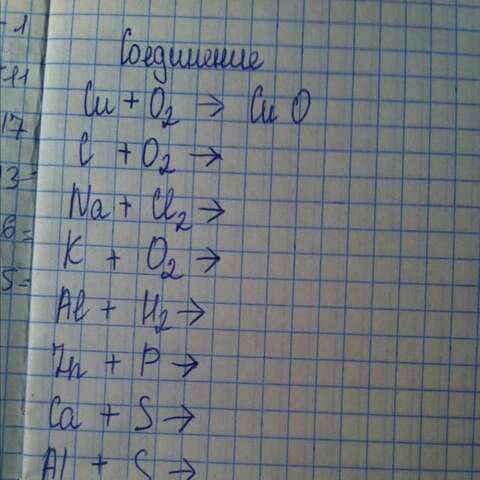 Соединение
Cu + O₂ → CuO
C + O₂ →
Na + Cl₂ →
K + O₂ →
Al + H₂ →
Zn + P →
Ca + S →
Al + S →